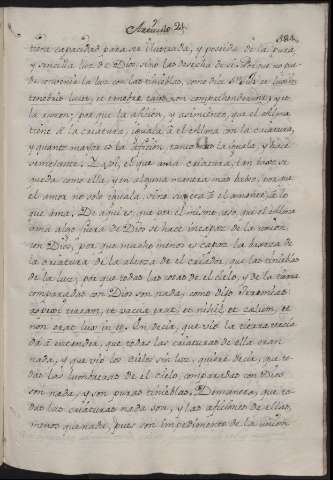 Articulo 21.
384.
tiene capacidad para ser ilustrada, y poseida de la pura
y sencilla luz de Dios, sino las desecha de si. Porque no pue
de convenir la luz con las tinieblas, como dice Sn. Juan et lux in
tenebris lucet, et tenebræ eam non comprehenderunt, y es
la razon; por que la aficion, y asimiento, que el alma
tiene à la criatura, iguala à el alma con la criatura,
y quanto mayor es la aficion, tanto mas la iguala, y hace
semejante. Y asi, el que ama criatura, tan baxo se
queda como ella, y en alguna manera mas baxo, por que
el amor no solo iguala, sino sugeta à el amante, à lo
que ama. De aqui es, que por el mismo caso, que el alma
ama algo fuera de Dios se hace incapaz de la union
con Dios, por que mucho menos es capaz la baxeza de
la criatura de la alteza de el criador, que las tinieblas
de la luz; por que todas las cosas de el cielo, y de la tierra
comparadas con Dios son nada, como dijo Jeremias
aspexi terram, et vacua erat, et nihil, et cælum, et
non erat lux in eis. En decia, que vió la tierra vacia
dà à entender, que todas las criaturas de ella eran
nada, y que vió los cielos sin luz, quiere decir, que to
das las lumbreras de el cielo, comparadas con Dios
son nada, y son puras tinieblas. Demanera, que to
das las criaturas nada son, y las aficiones de ellas,
menos que nada, pues son impedimento de la union